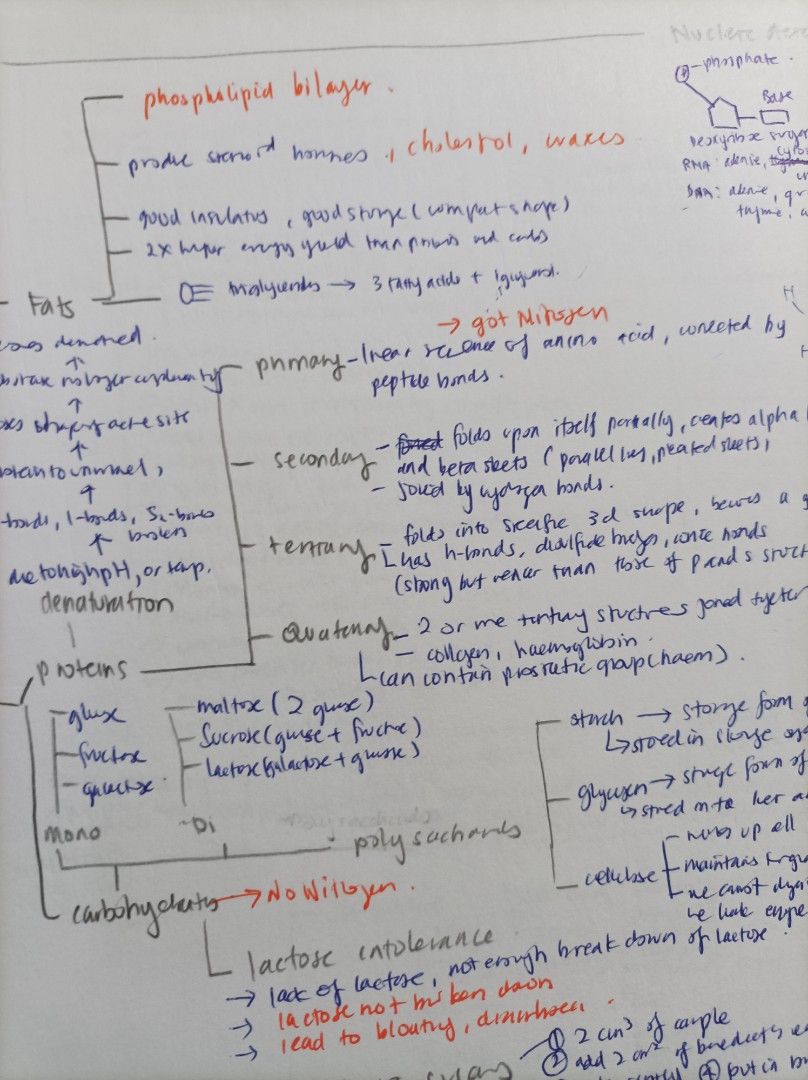 Nucleic
P - phosphate.
Base
Deoxyribose sugar
RNA: adenine,
DNA: adenine,
thymine,
phospholipid bilayer.
produce steroid hormones, cholestrol, waxes
good insulators, good storage (compact shape)
2x higher energy yield than proteins and carbs
Fats
triglycerides → 3 fatty acids + 1 glycerol.
→ got Nitrogen
denatured.
primary - linear sequence of amino acid, connected by
peptide bonds.
no longer complementary
shape of active site
secondary - folds upon itself partially, creates alpha
and beta sheets (parallel lines, pleated sheets)
- joined by hydrogen bonds.
protein to unravel,
-bonds, I-bonds, S2-bonds
broken
tertiary - folds into specific 3d shape, becomes a
has h-bonds, disulfide bridges, ionic bonds
(strong but weaker than those of p and s struct
due to high pH, or temp.
denaturation
Quaternary - 2 or more tertiary structures joined together
- collagen, haemoglobin.
can contain prosthetic group (haem).
proteins
glucose
fructose
galactose
Mono
maltose (2 glucose)
Sucrose (glucose + fructose)
lactose (galactose + glucose)
Di
polysacharides
starch → storage form
↳ stored in storage
glycogen → storage form of
↳ stored in the liver
cellulose
- makes up cell
- maintains
- we cannot digest
we lack enzyme
carbohydrates → No Nitrogen.
lactose intolerance
→ lack of lactose, not enough break down of lactose.
→ lactose not broken down
→ lead to bloating, diarrhoea.
① 2 cm³ of sample
② add 2 cm³ of benedict's
④ put in